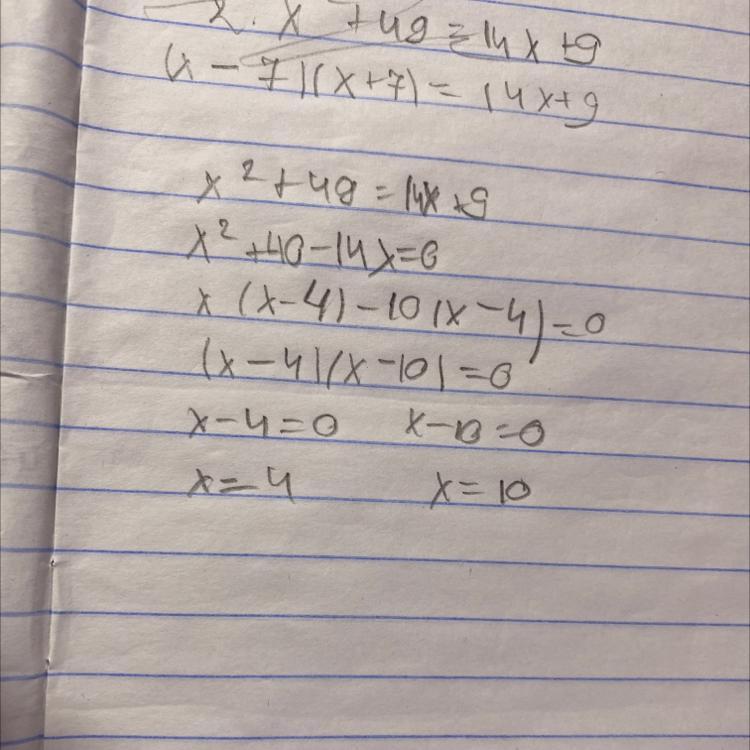 2. x + 49 = 14x + 9
(x - 7)(x + 7) = 14x + 9
x² + 49 = 14x + 9
x² + 40 - 14x = 0
x (x - 4) - 10 (x - 4) = 0
(x - 4)(x - 10) = 0
x - 4 = 0 x - 10 = 0
x = 4 x = 10